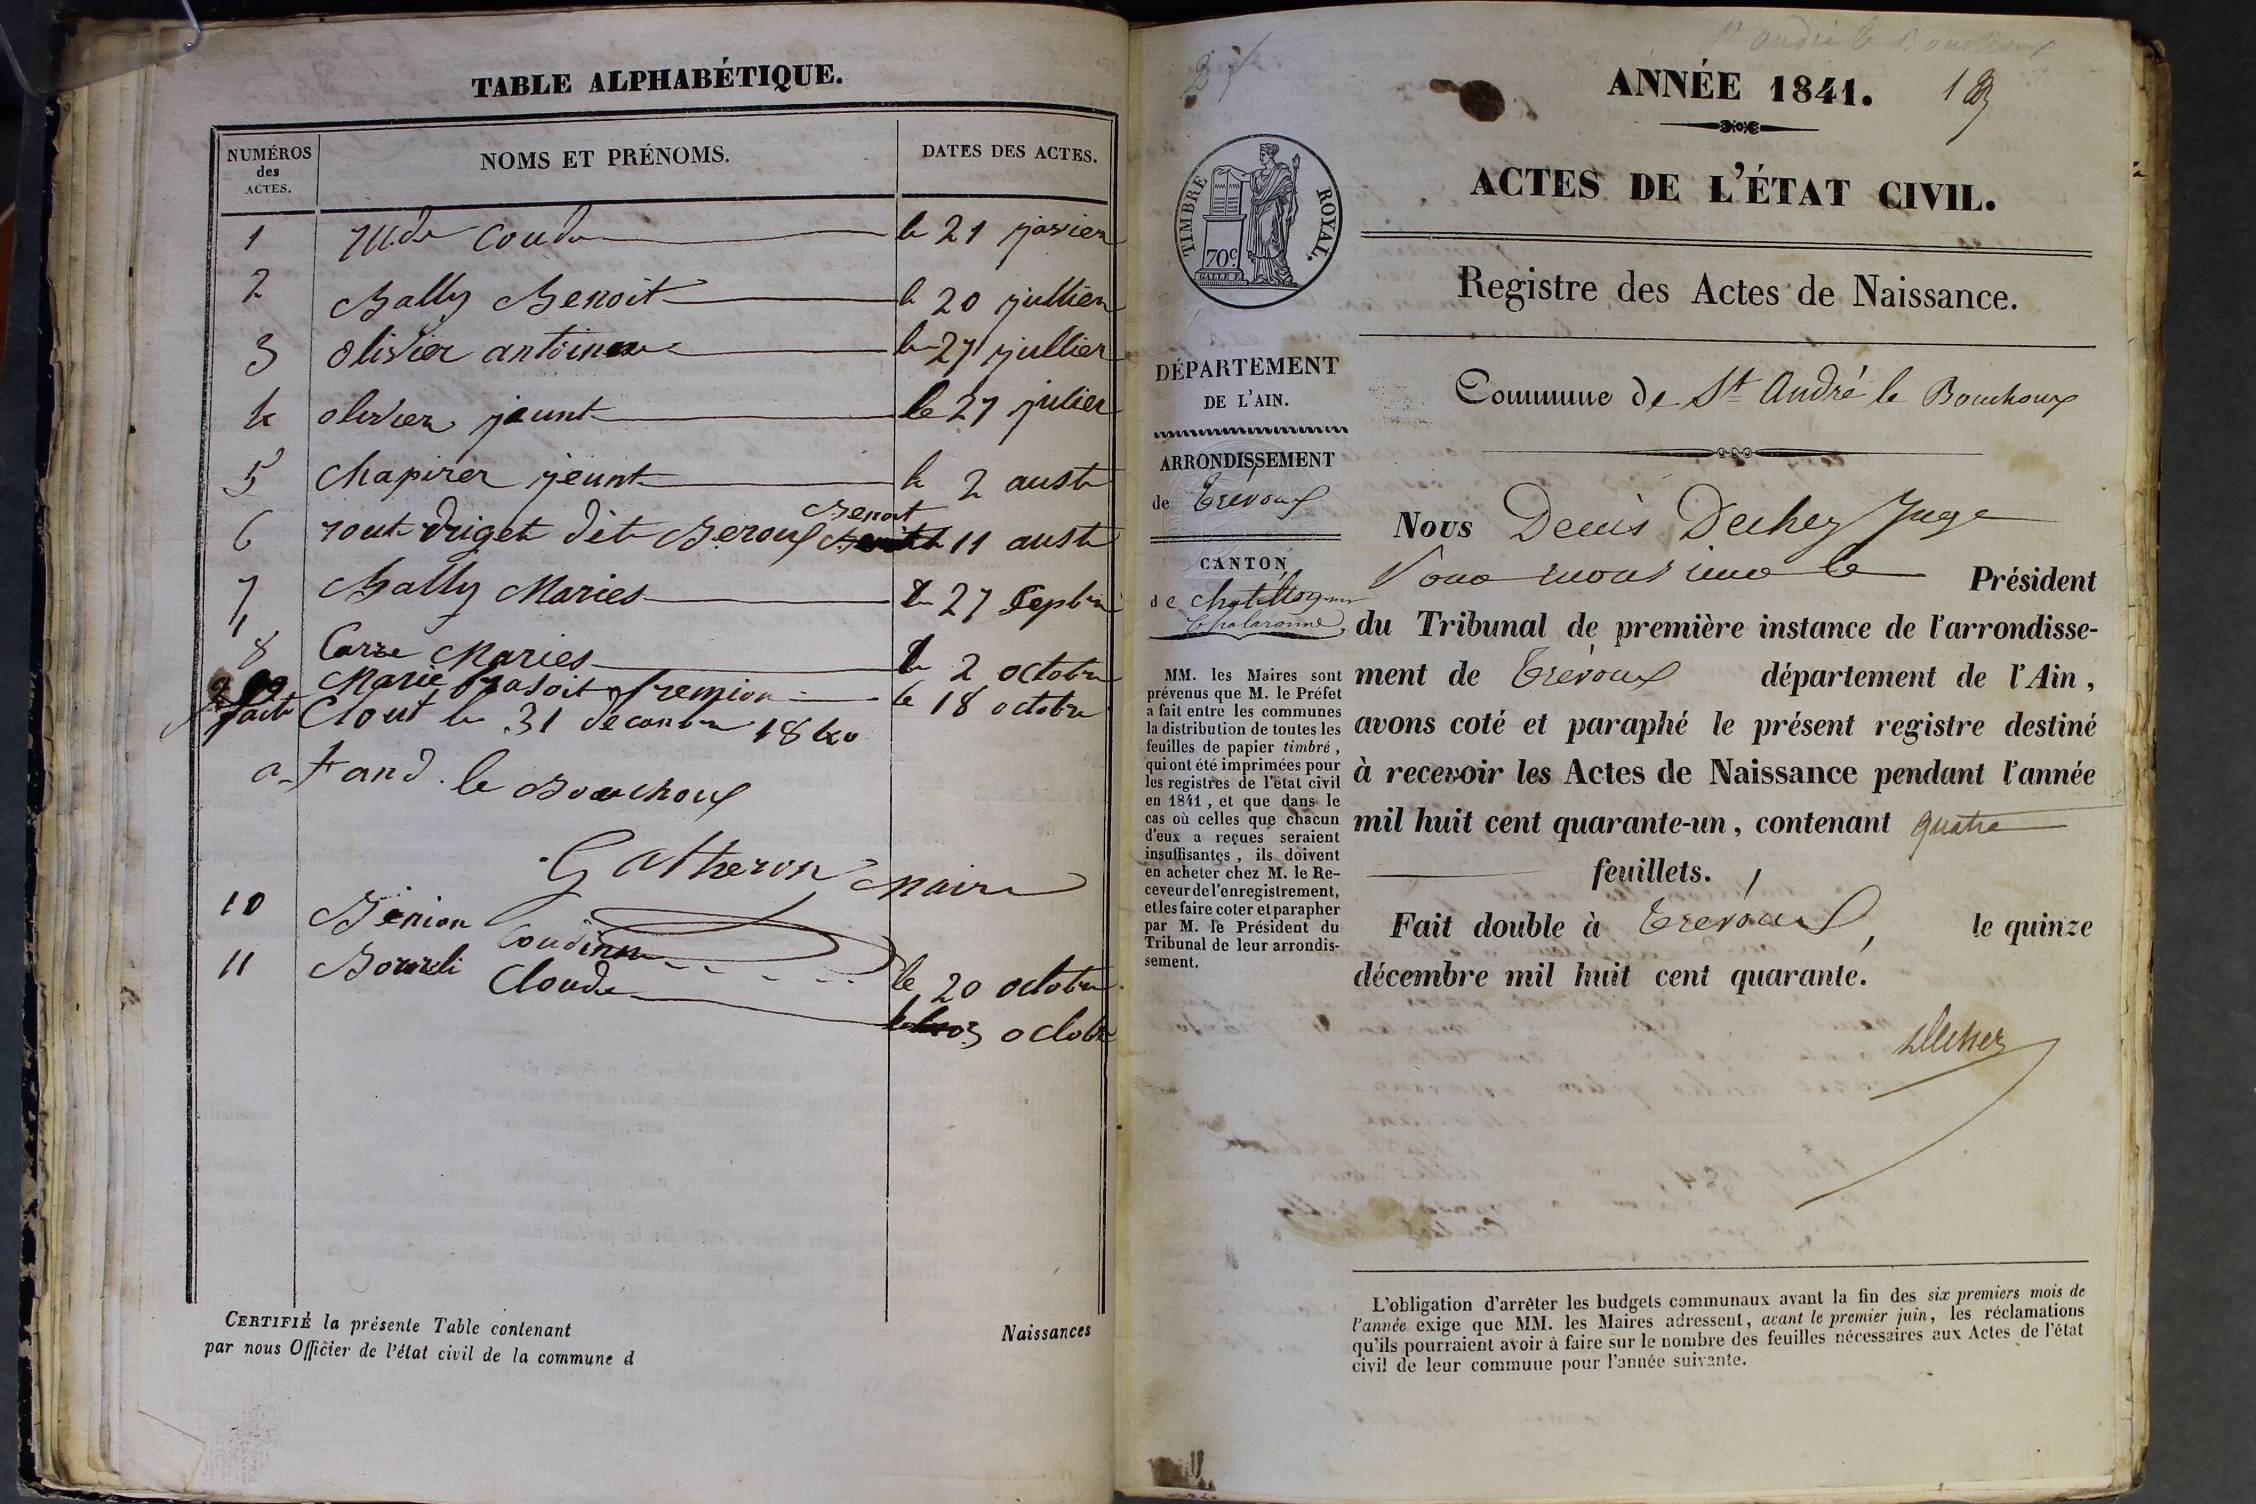 TABLE ALPHABÉTIQUE.
NUMÉROS des ACTES.
NOMS ET PRÉNOMS.
DATES DES ACTES.
1 le 21 janvier
2 Bally Benoit le 20 jullier
3 olivier antoine le 27 jullier
4 olivier jeunt le 27 julier
5 chapirer jeunt le 2 auste
6 rout driget dit Beroux Benoit 11 auste
7 Bally Maries le 27 Septbre
8 Carre Maries le 2 octobre
Marie le 18 octobre
fait Clout le 31 decembre 1840
a St and. le Bouchoux
Gatheron Maire
10 Benion Coudinne le 20 octobre
11 Bourdi Cloude octobre
CERTIFIÉ la présente Table contenant Naissances
par nous Officier de l'état civil de la commune d
St André le Bouchoux
ANNÉE 1841.
ACTES DE L'ÉTAT CIVIL.
TIMBRE ROYAL.
70c.
Registre des Actes de Naissance.
DÉPARTEMENT
DE L'AIN.
Commune de St André le Bouchoux
ARRONDISSEMENT
de Trévoux
CANTON
de Chatillon sur
Chalaronne
MM. les Maires sont
prévenus que M. le Préfet
a fait entre les communes
la distribution de toutes les
feuilles de papier timbré,
qui ont été imprimées pour
les registres de l'état civil
en 1841, et que dans le
cas où celles que chacun
d'eux a reçues seraient
insuffisantes, ils doivent
en acheter chez M. le Re-
ceveur de l'enregistrement,
et les faire coter et parapher
par M. le Président du
Tribunal de leur arrondis-
sement.
Nous Denis Dechez Juge
Pour monsieur le Président
du Tribunal de première instance de l'arrondisse-
ment de Trévoux département de l'Ain,
avons coté et paraphé le présent registre destiné
à recevoir les Actes de Naissance pendant l'année
mil huit cent quarante-un, contenant quatre
feuillets.
Fait double à Trévoux, le quinze
décembre mil huit cent quarante.
Dechez
L'obligation d'arrêter les budgets communaux avant la fin des six premiers mois de
l'année exige que MM. les Maires adressent, avant le premier juin, les réclamations
qu'ils pourraient avoir à faire sur le nombre des feuilles nécessaires aux Actes de l'état
civil de leur commune pour l'année suivante.